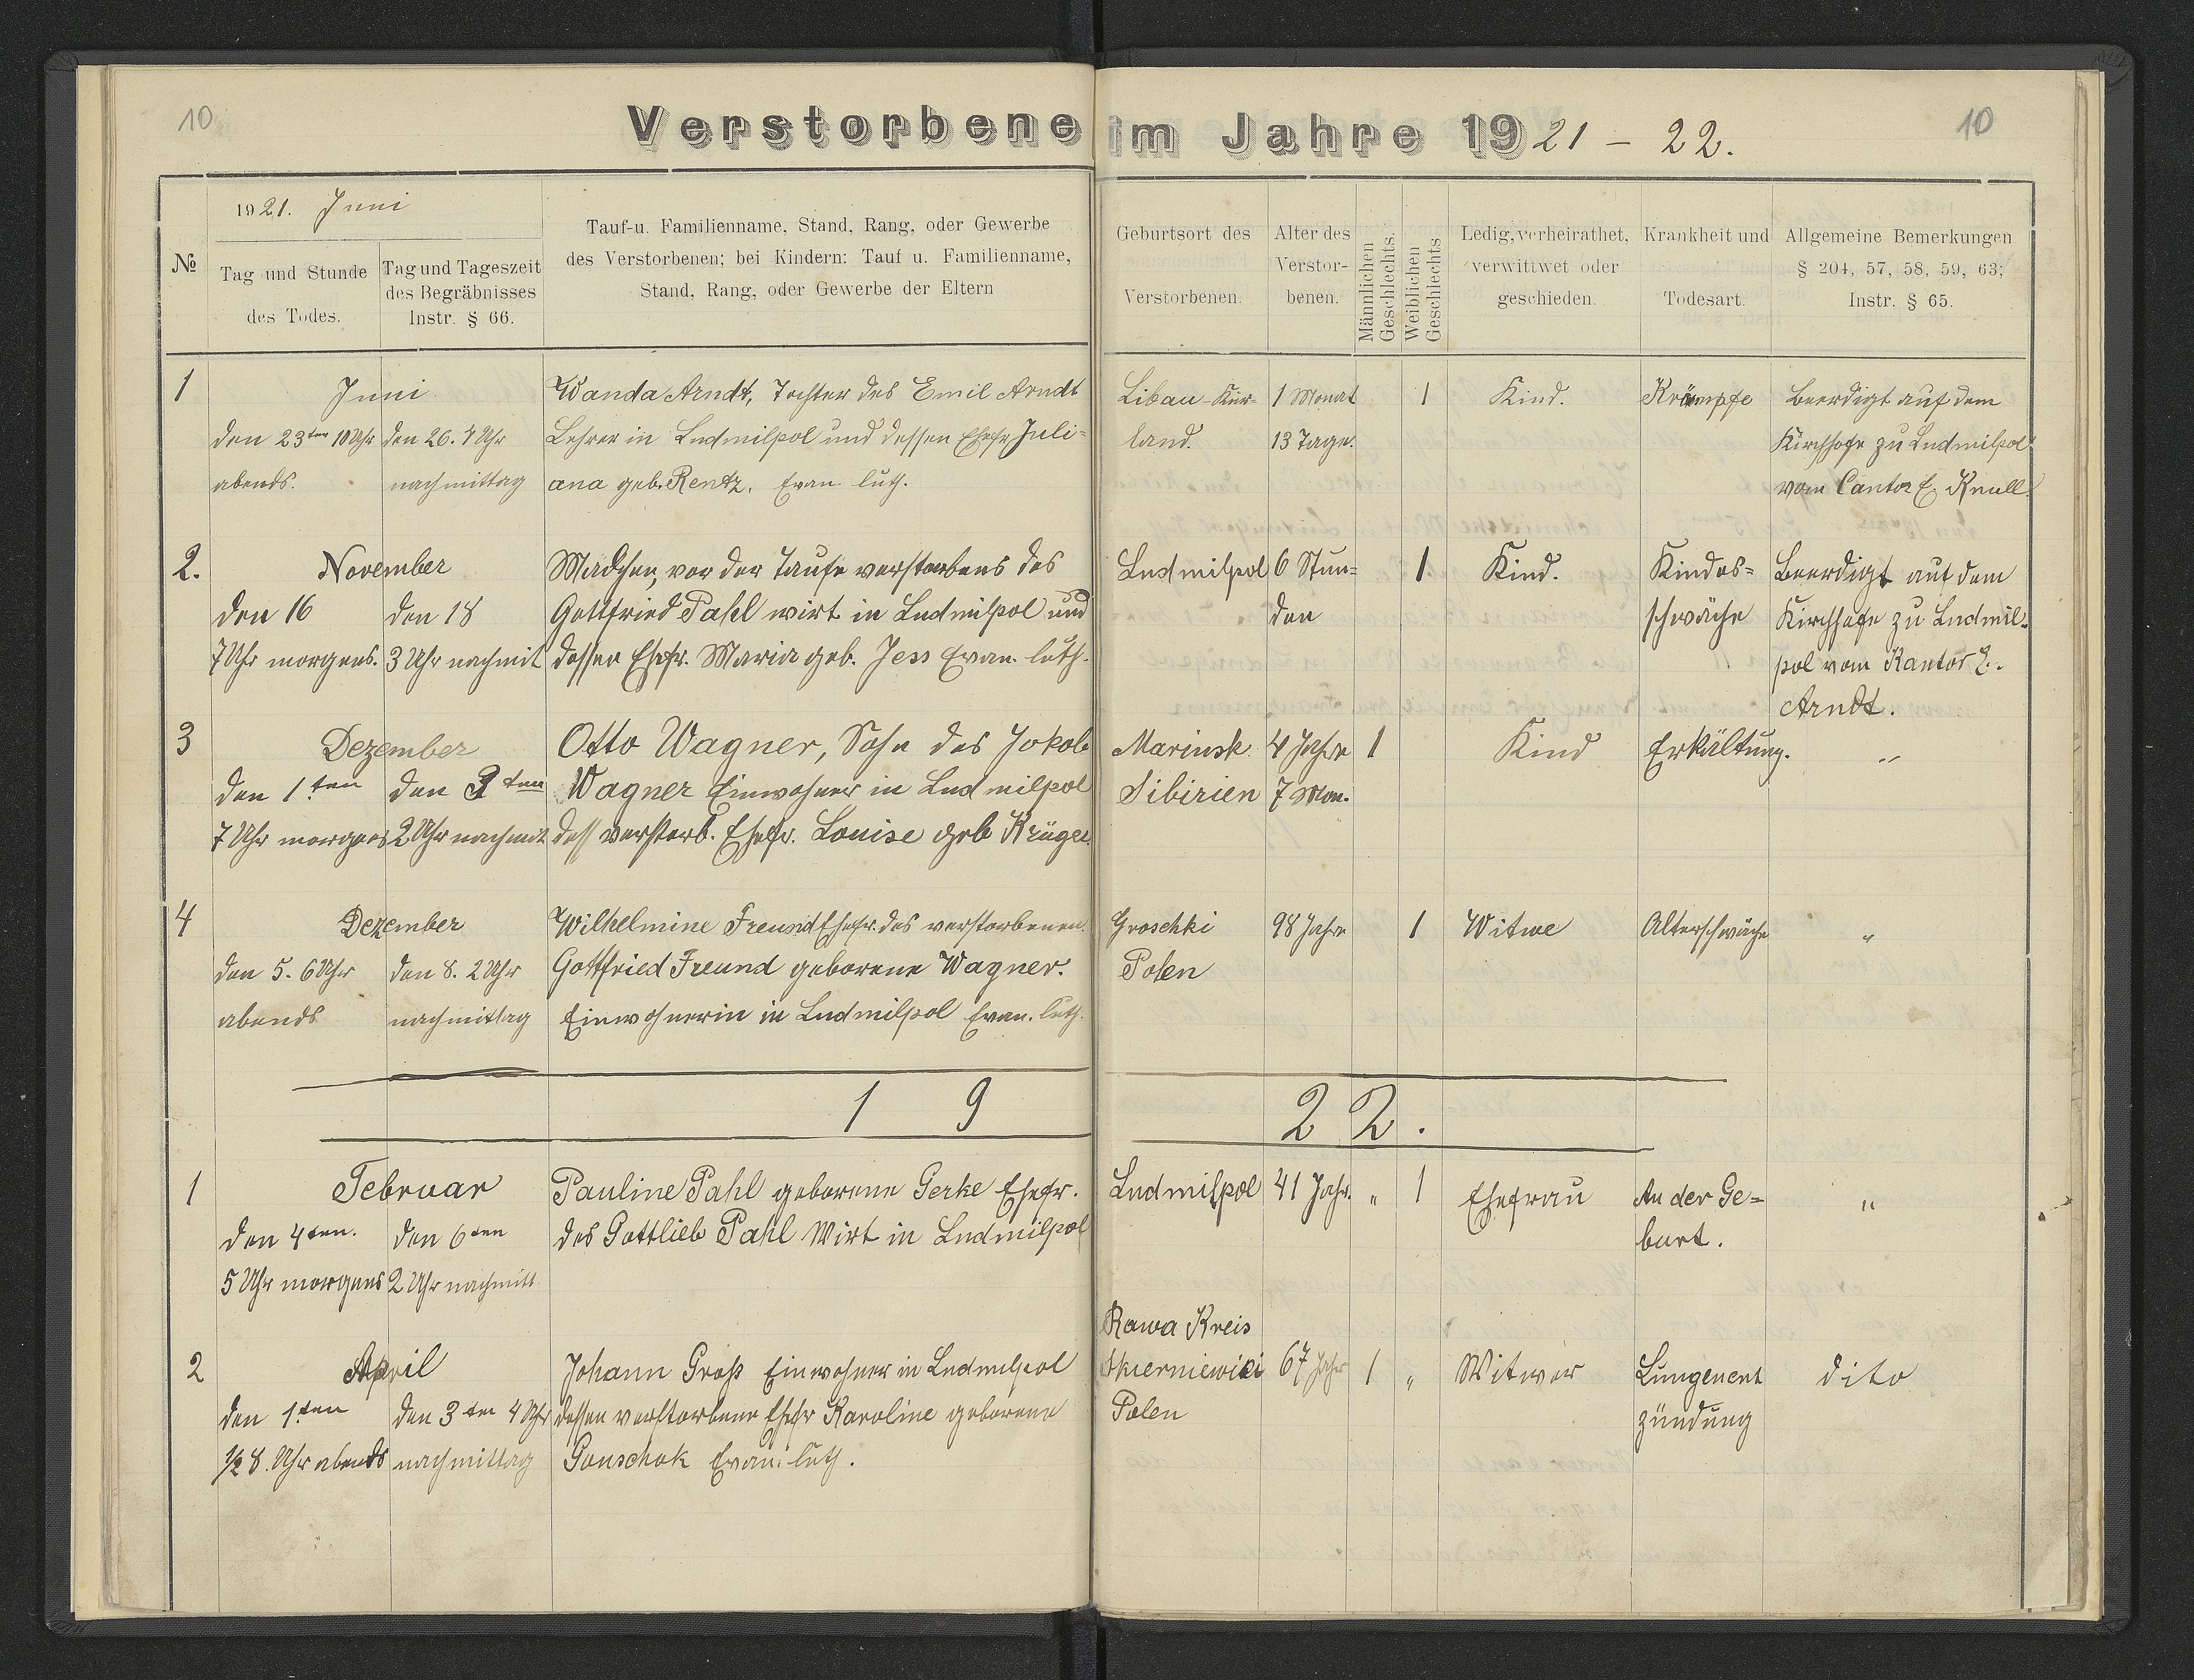 10
Verstorbene im Jahre 1921 - 22.
10
№
1921. Juni
Tag und Stunde
des Todes.
Tag und Tageszeit
des Begräbnisses
Instr. § 66.
Tauf-u. Familienname, Stand, Rang, oder Gewerbe
des Verstorbenen; bei Kindern: Tauf u. Familienname,
Stand, Rang, oder Gewerbe der Eltern
Geburtsort des
Verstorbenen.
Alter des
Verstor-
benen.
Männlichen
Geschlechts.
Weiblichen
Geschlechts
Ledig, verheirathet,
verwittwet oder
geschieden.
Krankheit und
Todesart.
Allgemeine Bemerkungen
§ 204, 57, 58, 59, 63;
Instr. § 65.
1
Juni
den 23ten 10 Uhr
abends.
den 26. 4 Uhr
nachmittag
Wanda Arndt, Tochter des Emil Arndt
Lehrer in Ludmilpol und dessen Ehefr Juli=
ana geb. Rentz. Evan. luth.
Libau-Kur-
land.
1 Monat
13 Tage.
1
Kind.
Krämpfe
Beerdigt auf dem
Kirchhofe zu Ludmilpol
vom Cantor E. Knull.
2.
November
den 16
7 Uhr morgens.
den 18
3 Uhr nachmit
Mädchen, vor der Taufe verstorbens des
Gottfried Pahl wirt in Ludmilpol und
dessen Ehefr. Maria geb. Jess Evan. luth.
Ludmilpol
6 Stun=
den
1
Kind.
Kindes=
schwäche
Beerdigt auf dem
Kirchhofe zu Ludmil-
pol vom Kantor E.
Arndt.
3
Dezember
den 1ten
7 Uhr morgens
den 3ten
2 Uhr nachmit
Otto Wagner, Sohn des Jokob
Wagner Einwohner in Ludmilpol
dess verstorb. Ehefr. Louise geb Krüger.
Mariusk
Sibirien
4 Jahre
7 Mon.
1
Kind
Erkältung.
"
4
Dezember
den 5. 6 Uhr
abends
den 8. 2 Uhr
nachmittag
Wilhelmine Freund Ehefr. des verstorbenen
Gottfried Freund geborene Wagner.
Einwohnerin in Ludmilpol Evan. luth.
Groschki
Polen
98 Jahre
1
Witwe
Alterschwäche
"
1922.
1
Februar
den 4ten.
5 Uhr morgens
den 6ten
2 Uhr nachmitt
Pauline Pahl geborene Gerke Ehefr.
des Gottlieb Pahl Wirt in Ludmilpol
Ludmilpol
41 Jahr.
"
1
Ehefrau
An der Ge=
burt.
"
2
April
den 1ten
1/2 8. Uhr abends
den 3ten 4 Uhr
nachmittag
Johann Groß Einwohner in Ludmilpol
dessen verstorbene Ehefr Karoline geborene
Gonschok Evan. luth.
Rawa Kreis
Skierniewici
Polen
67 Jahr
1
"
Witwer
Lungenent
zündung
dito